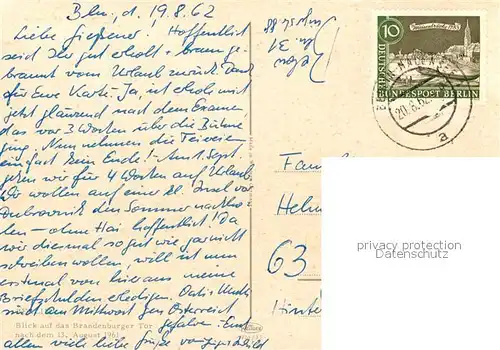 Bln., d. 19.8.62
Liebe Gießener! Hoffentlich
seid Ihr gut erholt + braun ge-
brannt vom Urlaub zurück. Dank
für Eure Karte. Ja, ich erhole mich
jetzt glänzend nach dem Examen,
das vor 3 Wochen über die Bühne
ging. Nun nehmen die Feiereien
einfach kein Ende! - Am 1. Sept.
gehen wir für 4 Wochen auf Urlaub.
Wir wollen auf eine kl. Insel vor
Dubrovnik den Sommer nachho-
len - ohne Hai hoffentlich! Da
wir diesmal so gut wie garnicht
schreiben wollen, will ich nun
erstmal von hier aus meine
Briefschulden erledigen.
sind am Mittwoch gen Österreich
gefahren. Euch
allen viele liebe Grüße von
Blick auf das Brandenburger Tor
nach dem 13. August 1961
10
DEUTSCHE BUNDESPOST BERLIN
BERLIN-HALENSEE
20.8.62
a
Fam
Helm
63
Hinte
privacy protection
Datenschutz